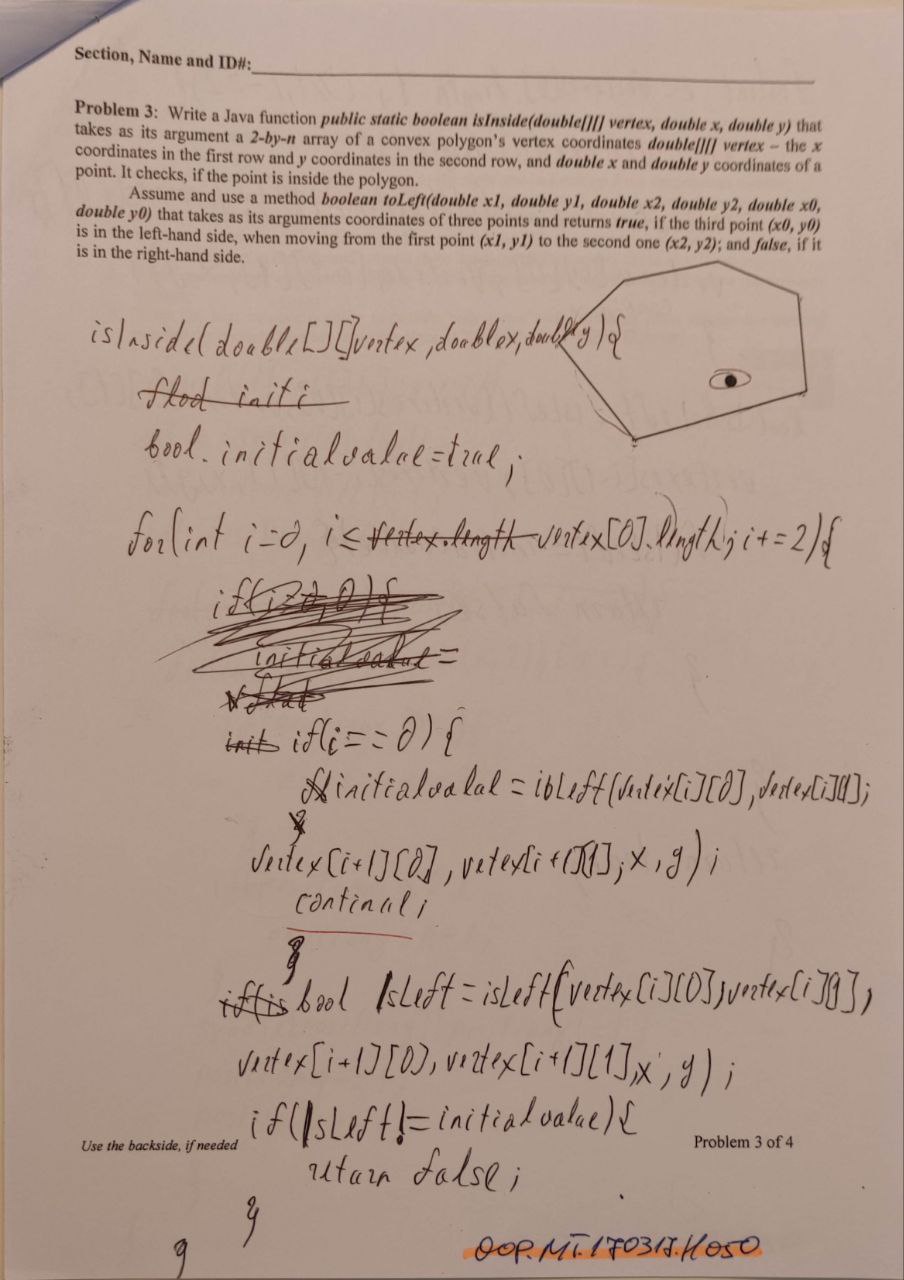 Section, Name and ID#:
Problem 3: Write a Java function public static boolean isInside(double[][] vertex, double x, double y) that
takes as its argument a 2-by-n array of a convex polygon's vertex coordinates double[][] vertex – the x
coordinates in the first row and y coordinates in the second row, and double x and double y coordinates of a
point. It checks, if the point is inside the polygon.
Assume and use a method boolean toLeft(double x1, double y1, double x2, double y2, double x0,
double y0) that takes as its arguments coordinates of three points and returns true, if the third point (x0, y0)
is in the left-hand side, when moving from the first point (x1, y1) to the second one (x2, y2); and false, if it
is in the right-hand side.
isInside(double[][]vertex,doublex,doubley){
initi
bool.initialvalue=true;
for(int i=0, i≤ vertex.length vertex[0].length; i+=2){
initialvalue=
init if(i==0){
initialvalue=isLeft(vertex[i][0],vertex[i][1];
}
vertex[i+1][0],vetex[i+1][1];x,y);
continue;
}
if(is bool IsLeft=isLeft(vertex[i][0];vertex[i][1],
vertex[i+1][0],vertex[i+1][1],x,y);
if(IsLeft!=initialvalue){
Use the backside, if needed
Problem 3 of 4
return false;
}
}
OOP.MT.170317.H050